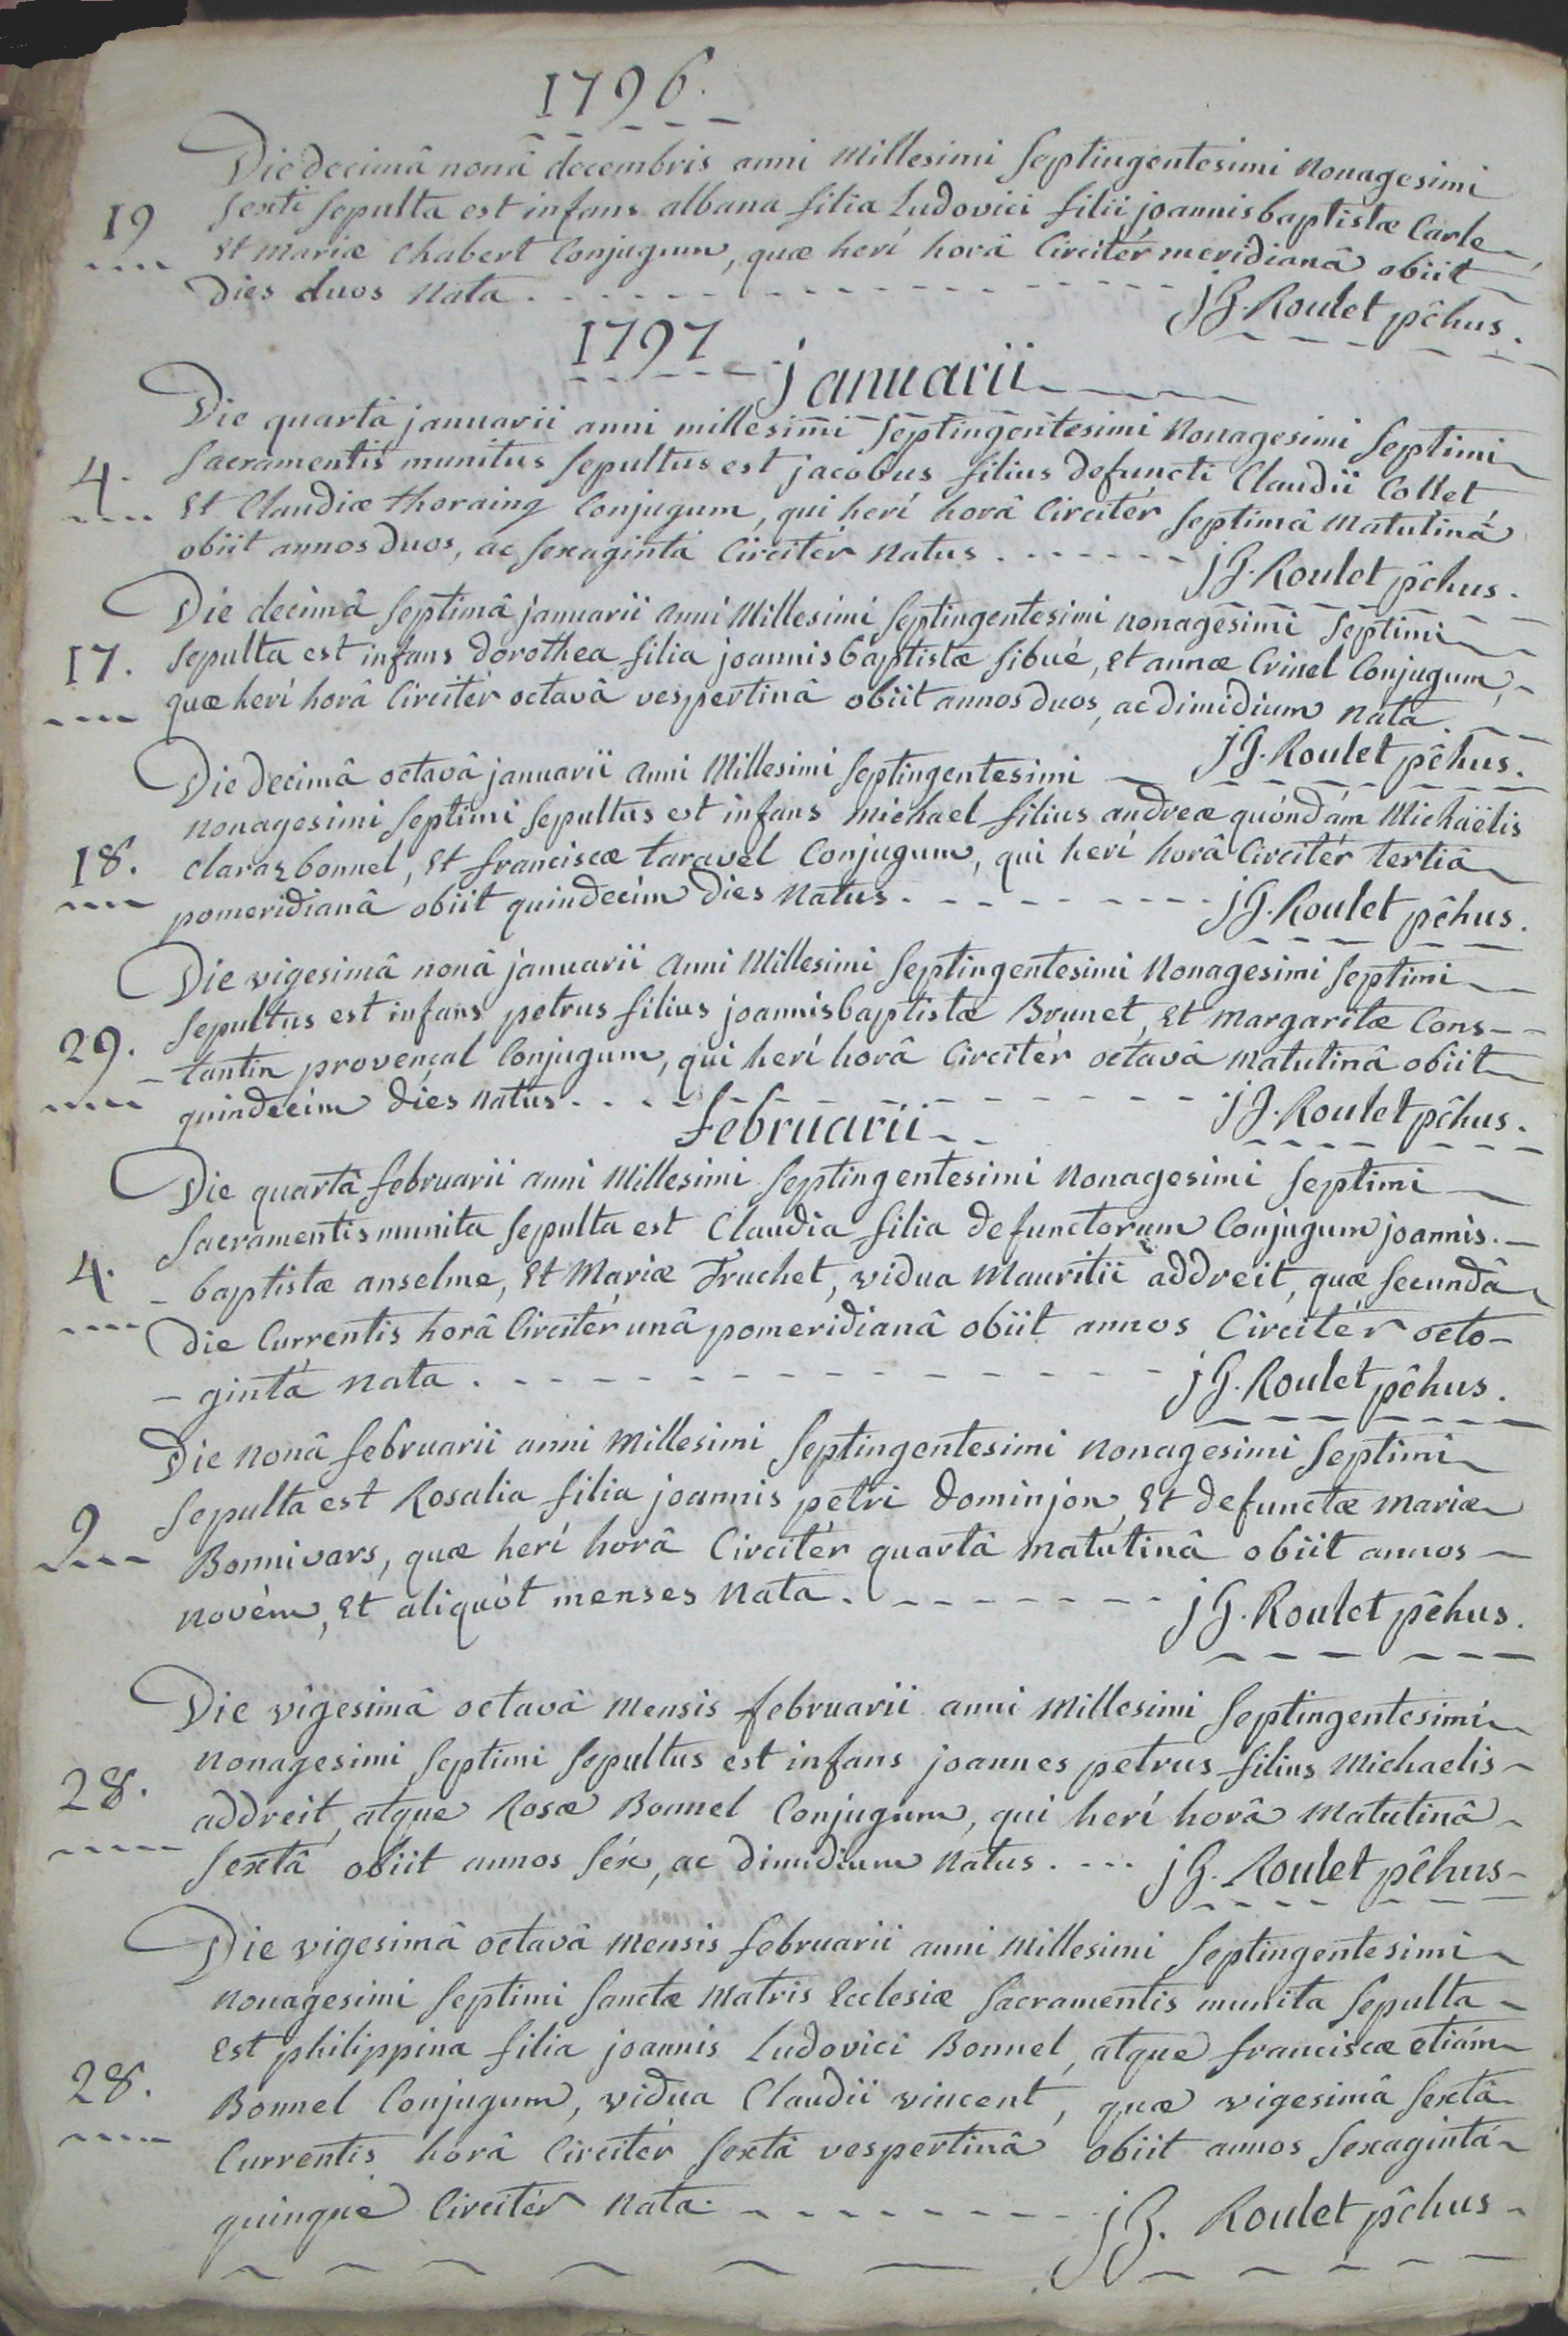 1796.
Die decimâ nonâ decembris anni Millesimi Septingentesimi Nonagesimi
19 Sexti Sepulta est infans albana filia Ludovici filii joannisbaptistæ Carle
Et Mariæ Chabert Conjugum, quæ herí horâ Circitér meridianâ obiit
dies duos Nata. jG. Roulet pêhus.
1797
januarii
Die quartâ januarii anni millesimi Septingentesimi Nonagesimi Septimi
4. Sacramentis munitus Sepultus est jacobus filius defuncti Claudii Collet
Et Claudiæ thoraing Conjugum, qui herí horâ Circitér Septimâ Matutinâ
obiit annos duos, ac Sexagintá Circitér Natus. jG. Roulet pêhus.
Die decimâ Septimâ januarii anni Millesimi Septingentesimi nonagesimi Septimi
17. Sepulta est infans dorothea filia joannisbaptistæ Sibué, Et annæ Crinel Conjugum,
quæ herí horâ Circitér octavâ vespertinâ obiit annos duos, ac dimidium Nata.
jG. Roulet pêhus.
Die decimâ octavâ januarii anni Millesimi Septingentesimi
nonagesimi Septimi Sepultus est infans michael filius andreæ quóndám Michaëlis
18. Claraz bonnel, Et franciscæ taravel Conjugum, qui herí horâ Circitér tertiâ
pomeridianâ obiit quindecim dies Natus. jG. Roulet pêhus.
Die vigesimâ nonâ januarii anni Millesimi Septingentesimi Nonagesimi Septimi
29. Sepultus est infans petrus filius joannisbaptistæ Brunet, Et Margaritæ Cons-
-tantin provençal Conjugum, qui herí horâ Circitér octavâ Matutinâ obiit
quindecim dies Natus. jG. Roulet pêhus.
februarii
Die quartâ februarii anni Millesimi Septingentesimi Nonagesimi Septimi
Sacramentis munita Sepulta est Claudia filia defunctorum Conjugum joannis.-
4. -baptistæ anselme, Et Mariæ Truchet, vidua Mauritii addreit, quæ Secundâ
Die Currentis horâ Circitér unâ pomeridianâ obiit annos Circitér octo-
-gintá Nata. jG. Roulet pêhus.
Die Nonâ februarii anni Millesimi Septingentesimi Nonagesimi Septimi
Sepulta est Rosalia filia joannis petri Dominjon, Et defunctæ Mariæ
9 Bonnivars, quæ herí horâ Circitér quartâ Matutinâ obiit annos
Novém, Et aliquót menses Nata. jG. Roulet pêhus.
Die vigesimâ octavâ Mensis februarii anni Millesimi Septingentesimi
Nonagesimi Septimi Sepultus est infans joannes petrus filius Michaelis
28. addreit, atque Rosæ Bonnel Conjugum, qui herí horâ Matutinâ
Sextâ obiit annos Séx, ac dimidium Natus. jG. Roulet pêhus-
Die vigesimâ octavâ Mensis februarii anni Millesimi Septingentesimi
Nonagesimi Septimi Sanctæ Matris Ecclesiæ Sacramentis munita Sepulta
Est philippina filia joannis Ludovici Bonnel, atque franciscæ etiám
28. Bonnel Conjugum, vidua Claudii vincent, quæ vigesimâ Sextâ
Currentis horâ Circitér Sextâ vespertinâ obiit annos Sexagintá
quinqué Circitér Nata. jG. Roulet pêhus-